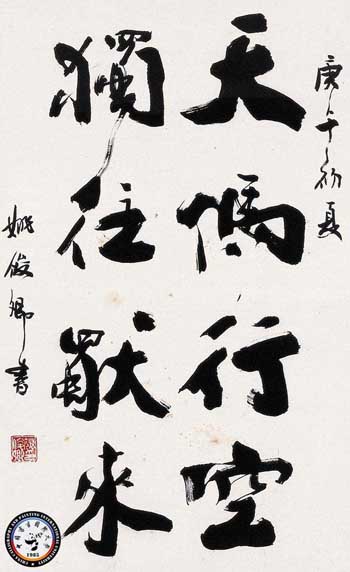 庚午初夏
天馬行空
獨往獨來
姚俊卿書
1985